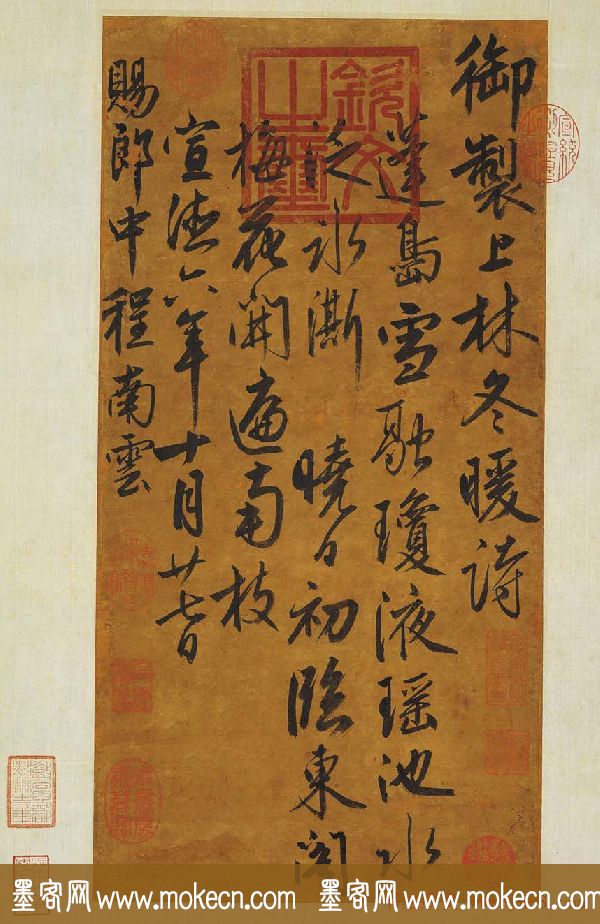 御製上林冬暖詩
蓬島雪融瓊液瑤池水
泛冰澌 曉日初臨東閣
梅花開遍南枝
宣德六年十月廿七日
賜郎中程南雲
欽文之璽
墨客网 www.mokecn.com 墨客网 www.mokecn.com